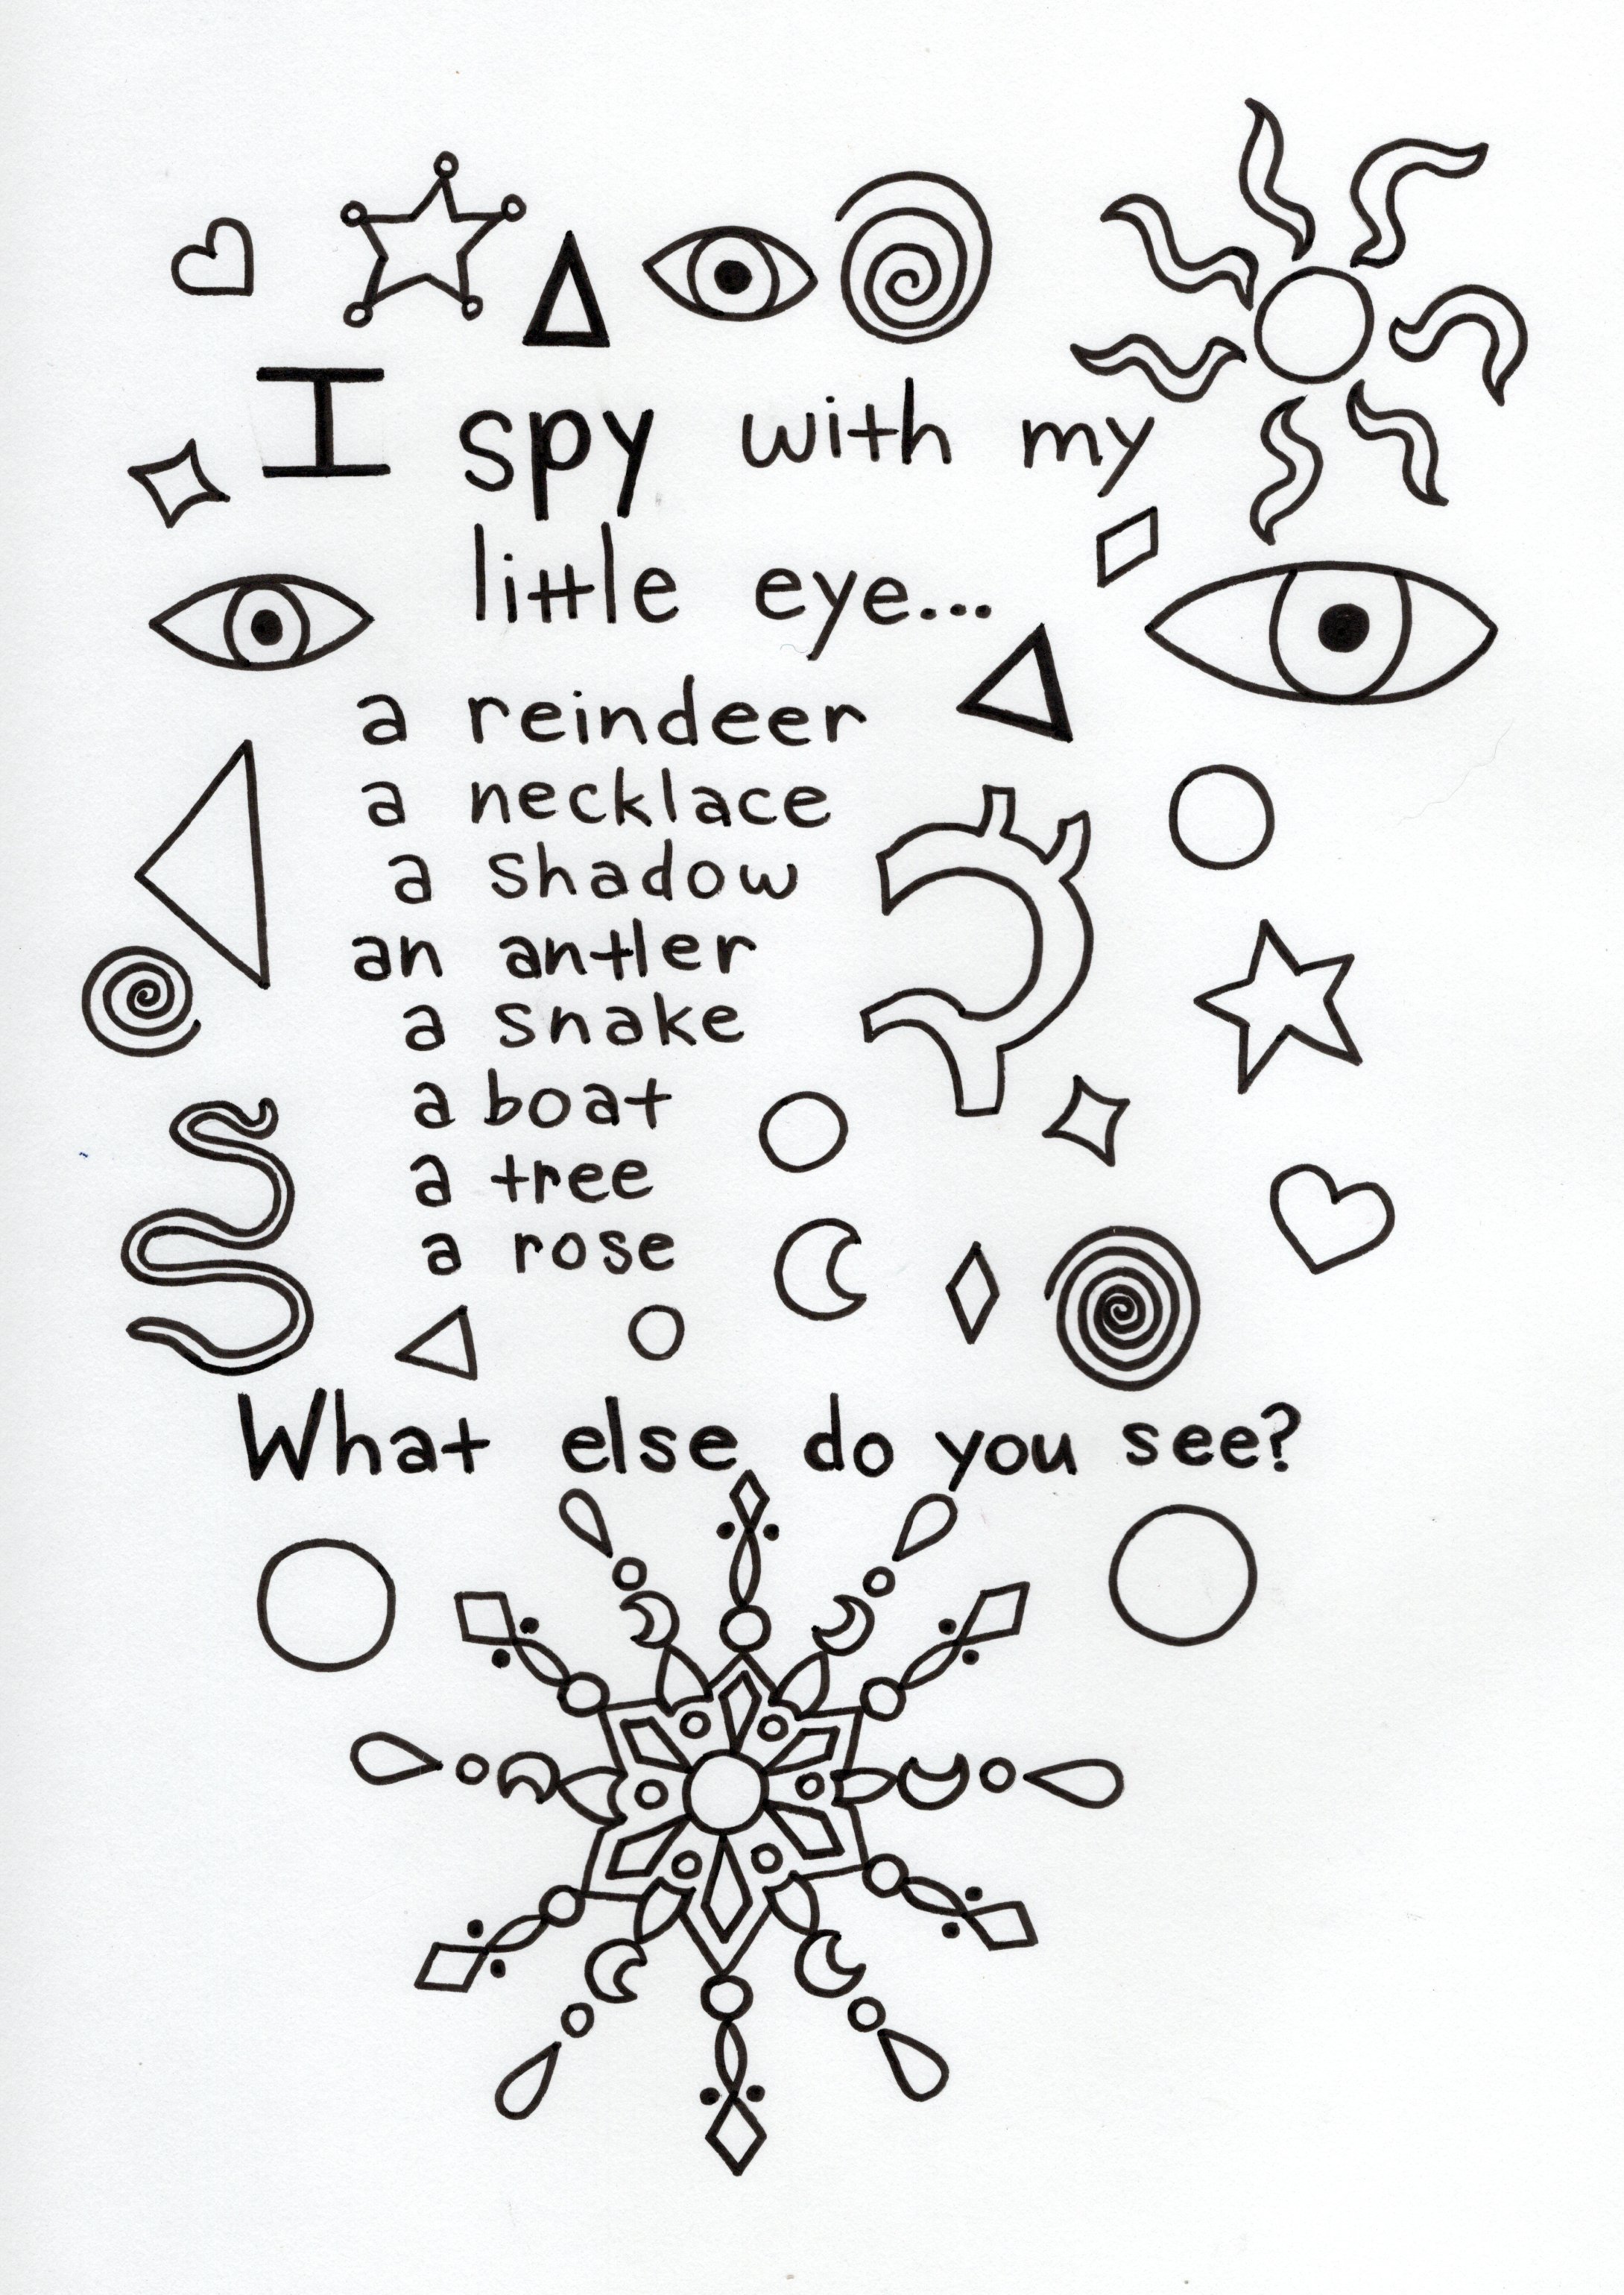 I spy with my
little eye...
a reindeer
a necklace
a shadow
an antler
a snake
a boat
a tree
a rose
What else do you see?